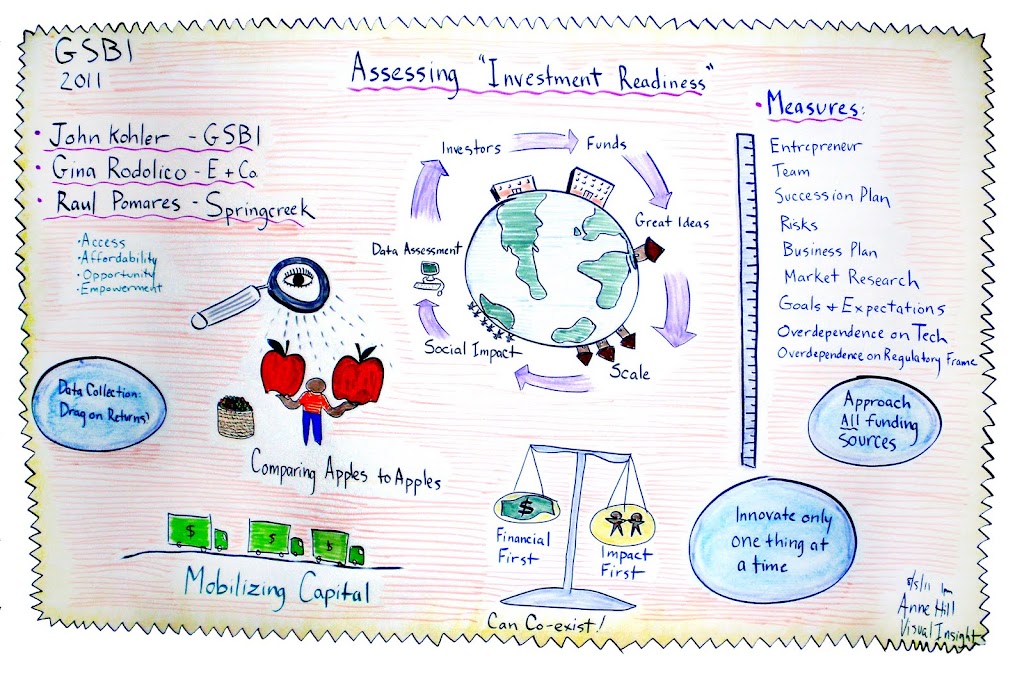 GSBI
2011
Assessing "Investment Readiness"
• John Kohler - GSBI
• Gina Rodolico - E + Co
• Raul Pomares - Springcreek
• Access
• Affordability
• Opportunity
• Empowerment
Data Collection:
Drag on Returns?
Comparing Apples to Apples
$
$
$
Mobilizing Capital
Investors
Funds
Great Ideas
Scale
Social Impact
Data Assessment
$
Financial
First
Impact
First
Can Co-exist!
• Measures:
Entrepreneur
Team
Succession Plan
Risks
Business Plan
Market Research
Goals + Expectations
Overdependence on Tech
Overdependence on Regulatory Frame
Approach
All funding
sources
Innovate only
one thing at
a time
Anne Hill
Visual Insight